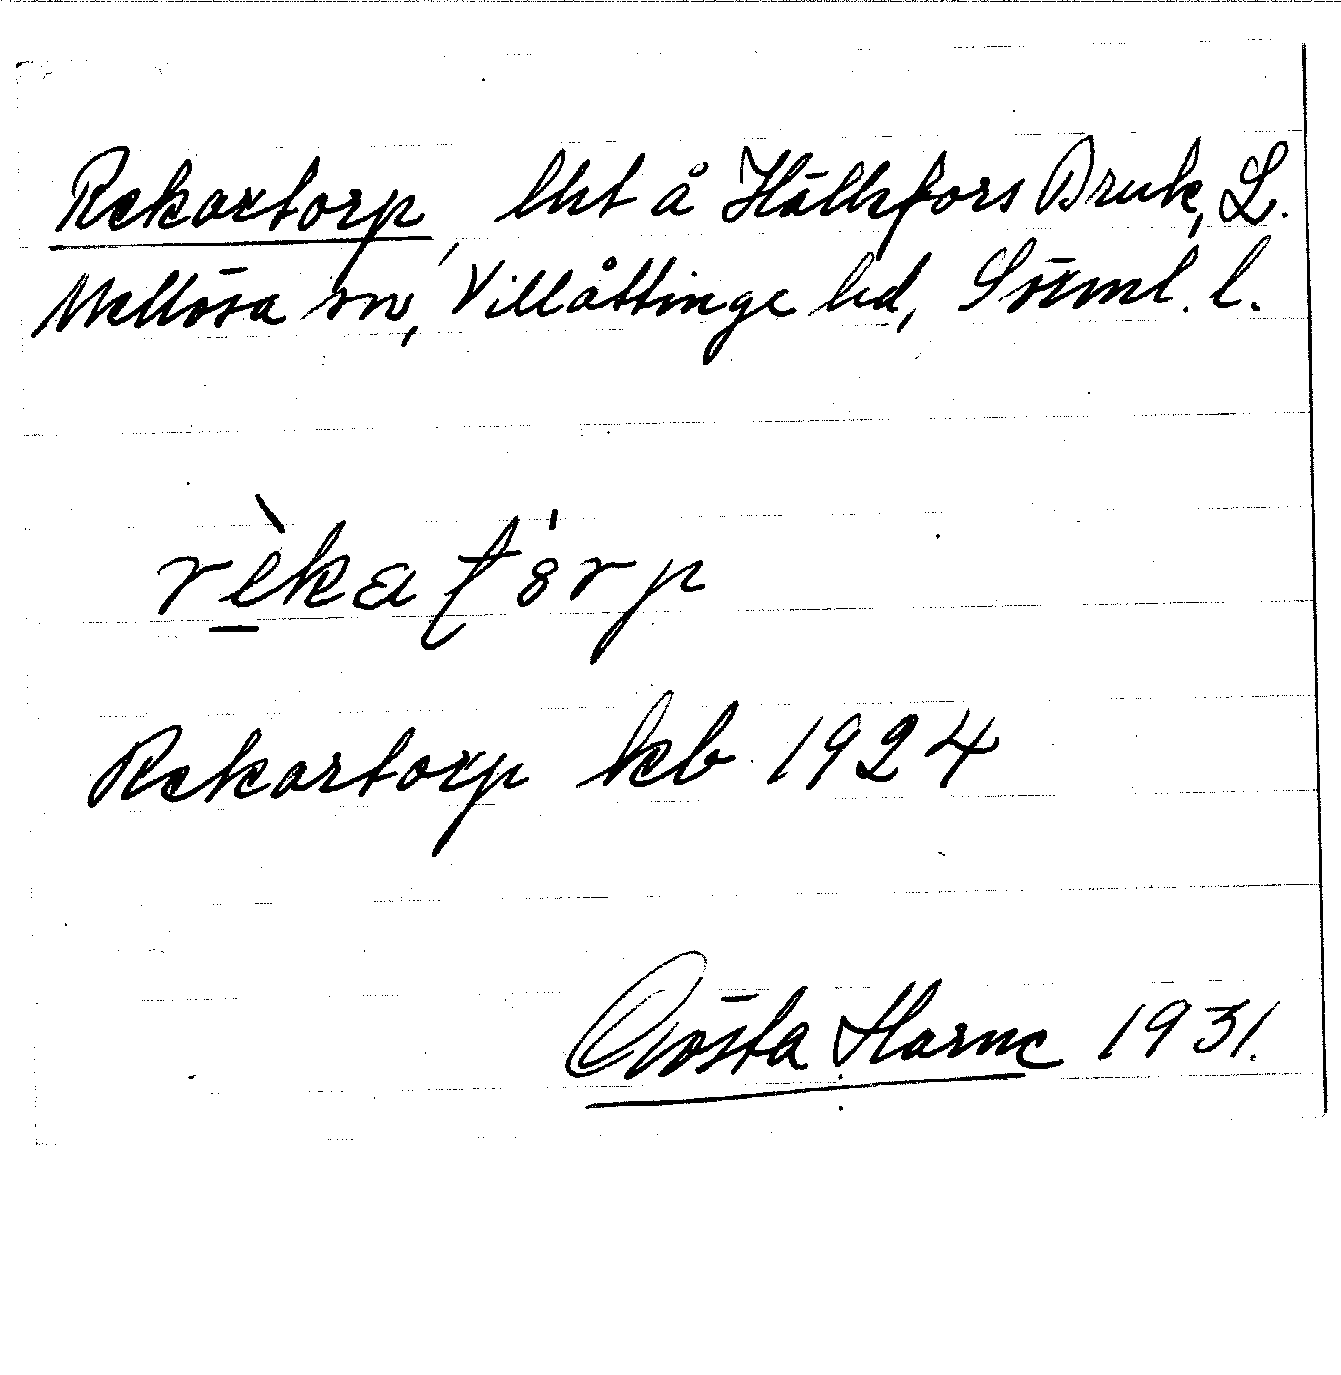 Rekartorp, lht å Hällefors Bruk, L.
Mellösa sn, Villåttinge hd, Sörml. l.
rèkatórp
Rekartorp kb 1924
Gösta Harne 1931.